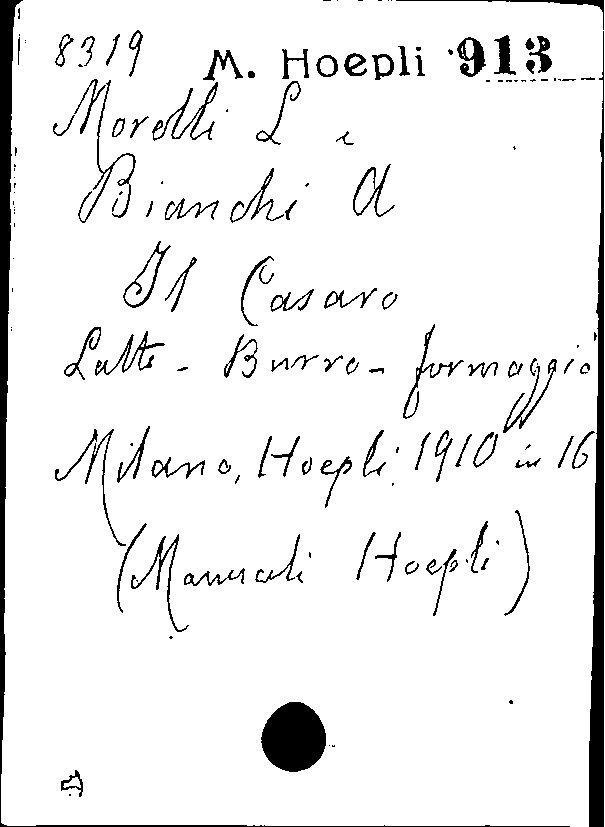 8319 M. Hoepli 913
Morelli L e
Bianchi A
Il Casaro
Latte - Burro - formaggio
Milano, Hoepli 1910 in 16
(Manuali Hoepli)